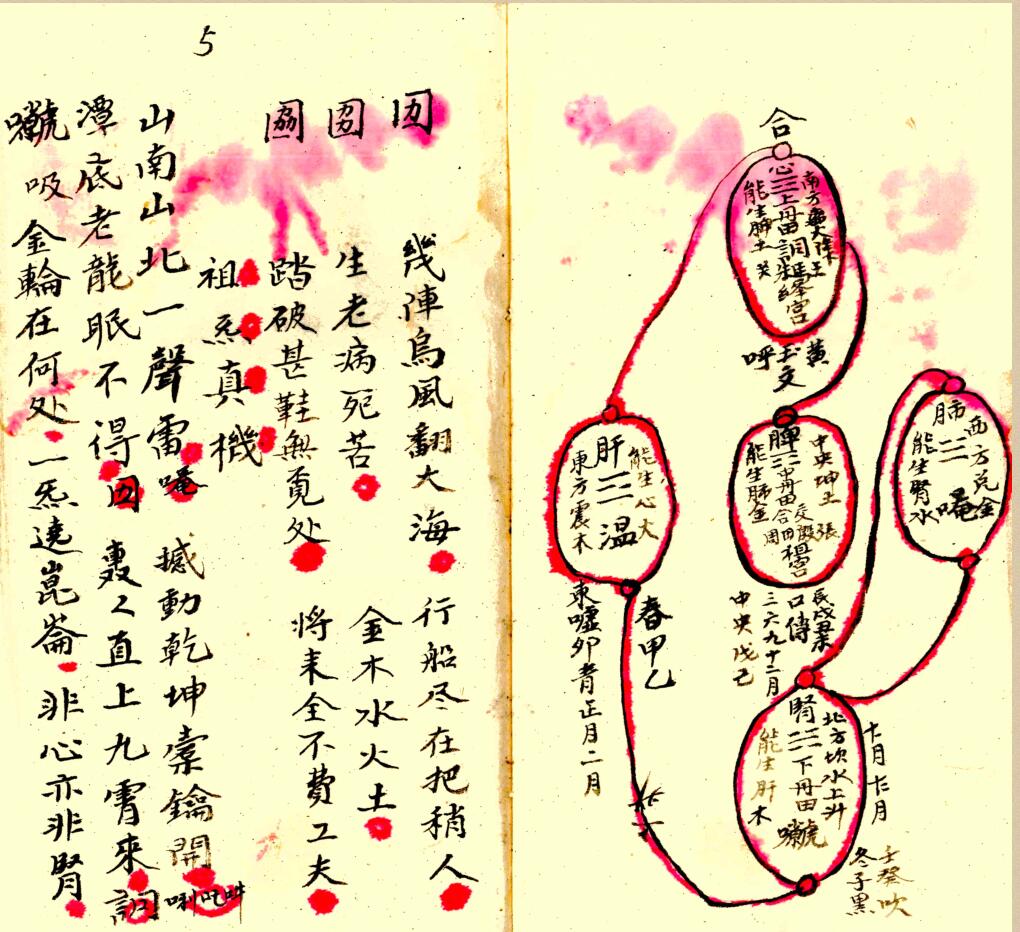 5
囡 囡 圀
幾陣烏風翻大海 行船尽在把稍人
生老病死苦 金木水火土
踏破甚鞋無覓处 将来全不費工夫
祖炁真機
山南山北一聲雷唵 撼動乾坤橐鑰開
潭底老龍眠不得 轟々直上九霄來
吸金輪在何处 一炁遶崑崙 非心亦非腎
合
南方
心三上丹田
絳宮
能生脾土
黄
玉文
呼
西方兌金
肺三唵
能生腎水
中央坤土
脾三中丹田
能生肺金
能生心火
肝三温
東方震木
辰戌丑未
口傳
三六九十二月
中央戊己
春甲乙
東嘘卯青正月二月
北方坎水上升
腎三下丹田
能生肝木
十月
壬癸吹
冬子黑